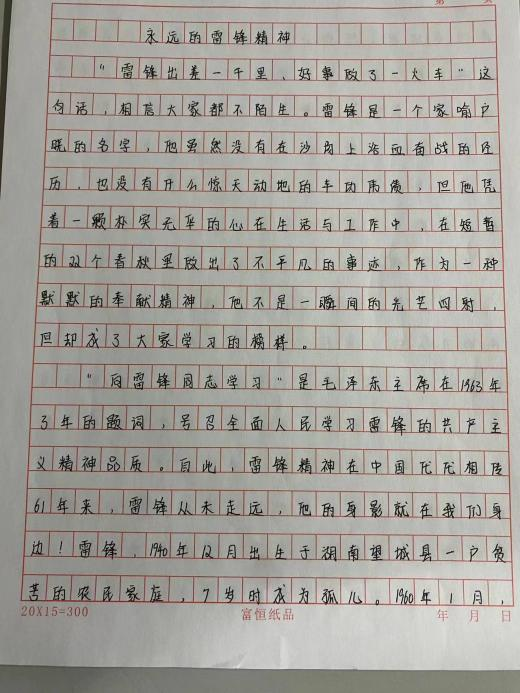 第 页
永远的雷锋精神
“雷锋出差一千里，好事做了一火车”这
句话，相信大家都不陌生。雷锋是一个家喻户
晓的名字，他虽然没有在沙场上浴血奋战的经
历，也没有什么惊天动地的丰功伟绩，但他凭
着一颗朴实无华的心在生活与工作中，在短暂
的22个春秋里做出了不平凡的事迹，作为一种
默默的奉献精神，他不是一瞬间的光芒四射，
但却成了大家学习的榜样。
“向雷锋同志学习”是毛泽东主席在1963年
3年的题词，号召全面人民学习雷锋的共产主
义精神品质。自此，雷锋精神在中国代代相传
61年来，雷锋从未走远，他的身影就在我们身
边！雷锋，1940年12月出生于湖南望城县一户贫
苦的农民家庭，7岁时成为孤儿。1960年1月，
20X15=300 富恒纸品 年 月 日